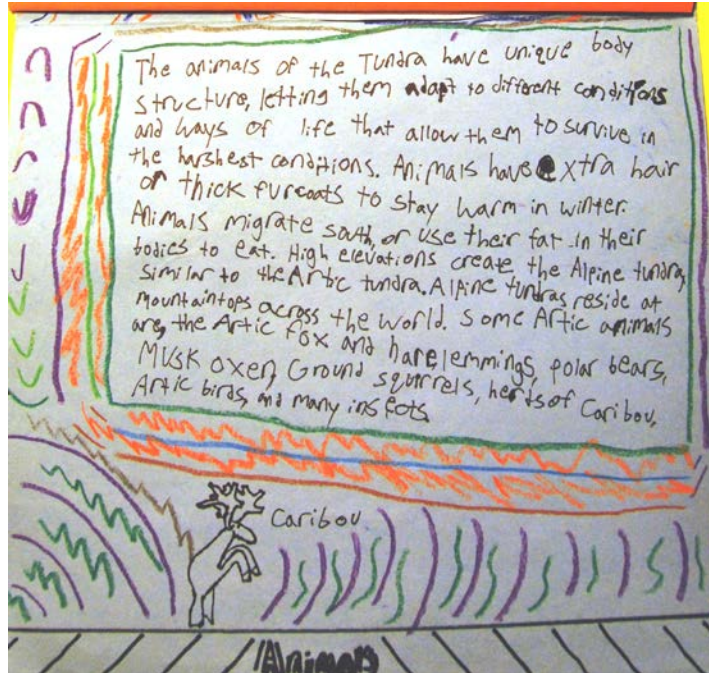 The animals of the Tundra have unique body
structure, letting them adapt to different conditions
and ways of life that allow them to survive in
the harshest conditions. Animals have extra hair
or thick furcoats to stay warm in winter.
Animals migrate south, or use their fat in their
bodies to eat. High elevations create the Alpine tundra,
similar to the Artic tundra. Alpine tundras reside at
mountaintops across the world. Some Artic animals
are, the Artic fox and hare, lemmings, polar bears,
Musk oxen, Ground squirrels, herds of Caribou,
Artic birds, and many insects
Caribou
Animals